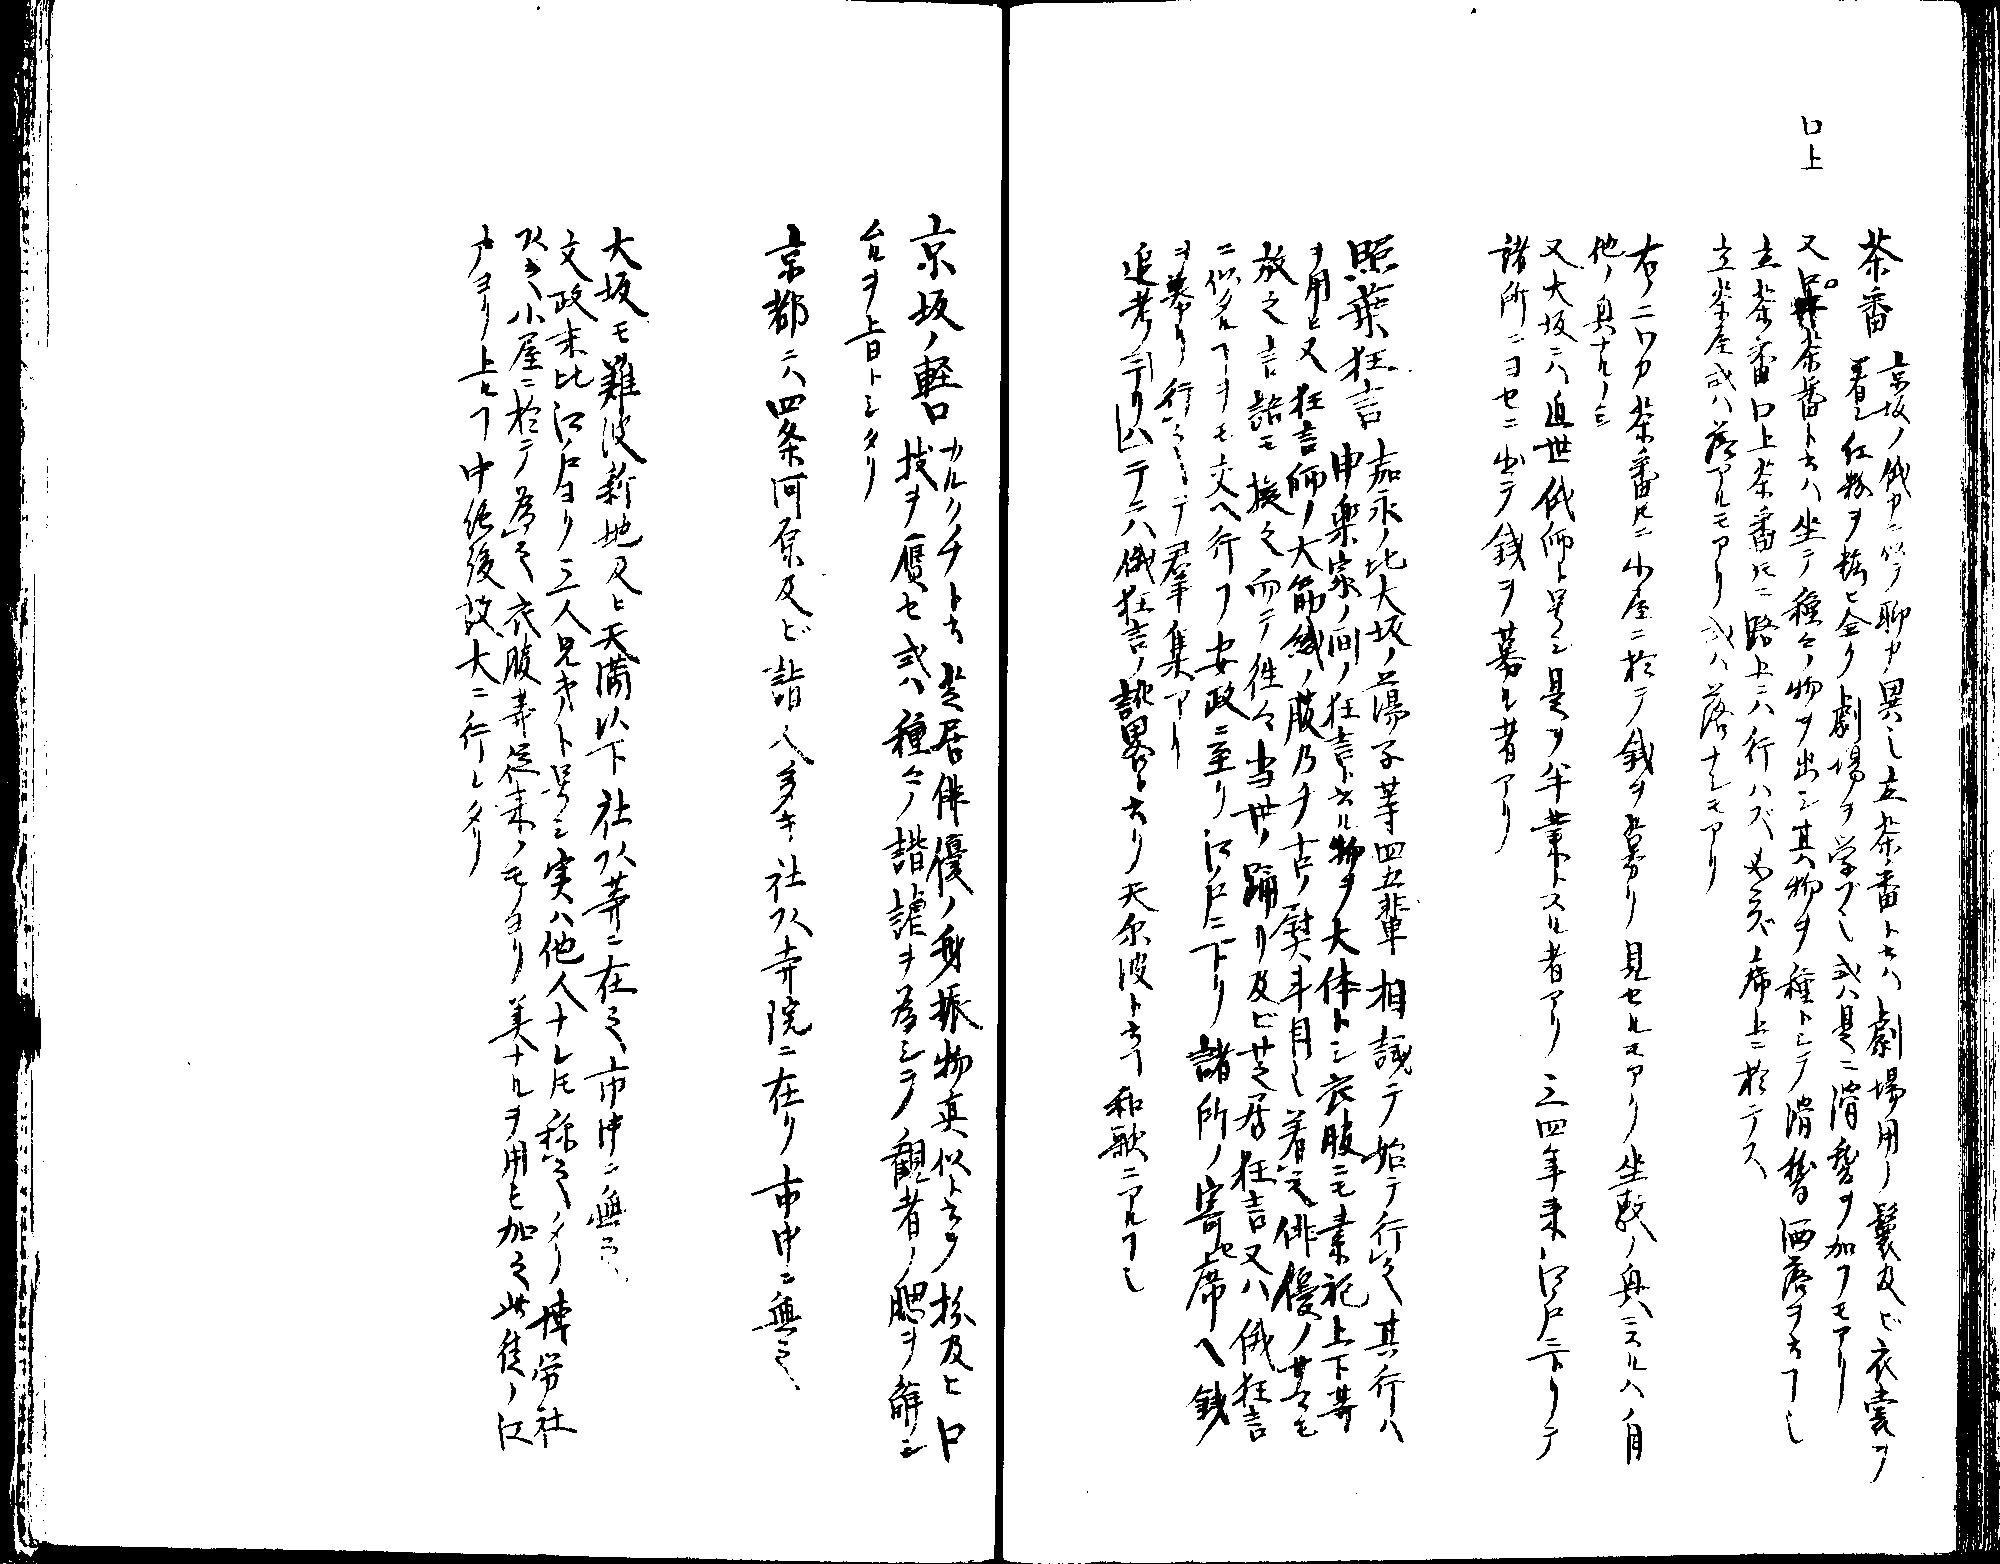 口上
茶番 京坂ノ俄カニ似テ聊カ異也立茶番ト云ハ劇場用ノ鬘及ビ衣裳ヲ
着シ紅粉ヲ粧ヒ全ク劇場ヲ学ブ也或ハ是ニ滑稽ヲ加フモアリ
又口上茶番ト云ハ坐テ種々ノ物ヲ出シ其物ヲ種トシテ滑稽洒落ヲ云フ也
立茶番口上茶番トモニ路上ニハ行ハズ必ラズ席上ニ於テス
立茶番或ハ落アルモアリ或ハ落ナキモアリ
右ノ二ツカ茶番トモニ小屋ニ於テ銭ヲ募リ見セルモアリ坐敷ノ興ニスルハ自
他ノ興ナルノミ
又大坂ニハ近世俄師ト号シ是ヲ半業トスル者アリ三四年来江戸ニ下リテ
諸所ニヨセニ出テ銭ヲ募ル者アリ
照葉狂言 嘉永ノ比大坂ノ蕩子等四五輩相議テ始テ行之其行ハ
申楽家ノ間ノ狂言ト云ル物ヲ大体トシ衣服ニモ素袍上下等
ヲ用ヒ又狂言師ノ大筋繊ノ服乃チ古ノ熨斗目也着之俳優ノ芸モ
放之言語モ擬之而テ往々当世ノ踊リ及ビ芝居狂言又ハ俄狂言
ニ似タルヿヲモ交ヘ行フ安政ニ至リ江戸ニ下リ諸所ノ寄セ席ヘ銭
ヲ募リ行之テ群集アリ
追考ニテリハニテニハ俄狂言ノ訛畧ト云リ天尓波ト云フ和歌ニアルヿ也
京坂ノ軽口 カルクチト云芝居俳優ノ身振物真似ト云ヲ扮及ヒ口
技ヲ贋セ或ハ種々ノ諧謔ヲ為シヲ観者ノ腮ヲ解シ
ムルヲ上日トシタリ
京都ニハ四条河原及ビ詣人多キ社又寺院ニ在リ市中ニ無之
大坂モ難波新地及ヒ天満以下社又等ニ在之市中ニ無之
文政末比江戸ヨリ三人兄弟ト号シ実ハ他人ナレトモ称之タリ博労社
又々小屋ニ於テ為之衣服等従来ノモヨリ美ナルヲ用ヒ加之此徒ノ江
戸ヨリ上ルヿ中絶後故大ニ行レタリ